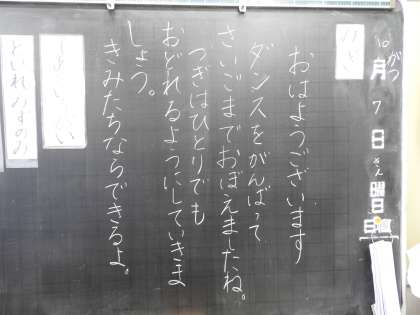 10がつ
月7日
曜日
おはようございます
ダンスをがんばって
さいごまでおぼえましたね。
つぎはひとりでも
おどれるようにしていきま
しょう。
きみたちならできるよ。
といれ みずのみ